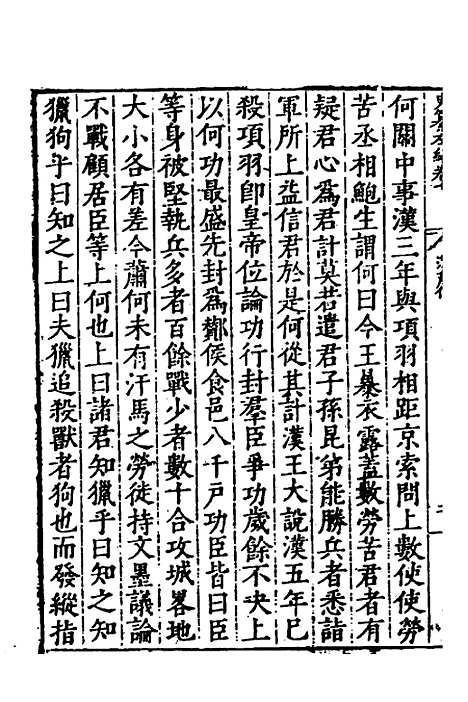 何關中事漢三年與項羽相距京索間上數使使勞
苦丞相鮑生謂何曰今王暴衣露蓋數勞苦君者有
疑君心為君計莫若遣君子孫昆弟能勝兵者悉詣
軍所上益信君於是何從其計漢王大說漢五年已
殺項羽卽皇帝位論功行封羣臣爭功歲餘不决上
以何功最盛先封為酇侯食邑八千戶功臣皆曰臣
等身被堅執兵多者百餘戰少者數十合攻城畧地
大小各有差今蕭何未有汗馬之勞徒持文墨議論
不戰顧居臣等上何也上曰諸君知獵乎曰知之知
獵狗乎曰知之上曰夫獵追殺獸者狗也而發縱指